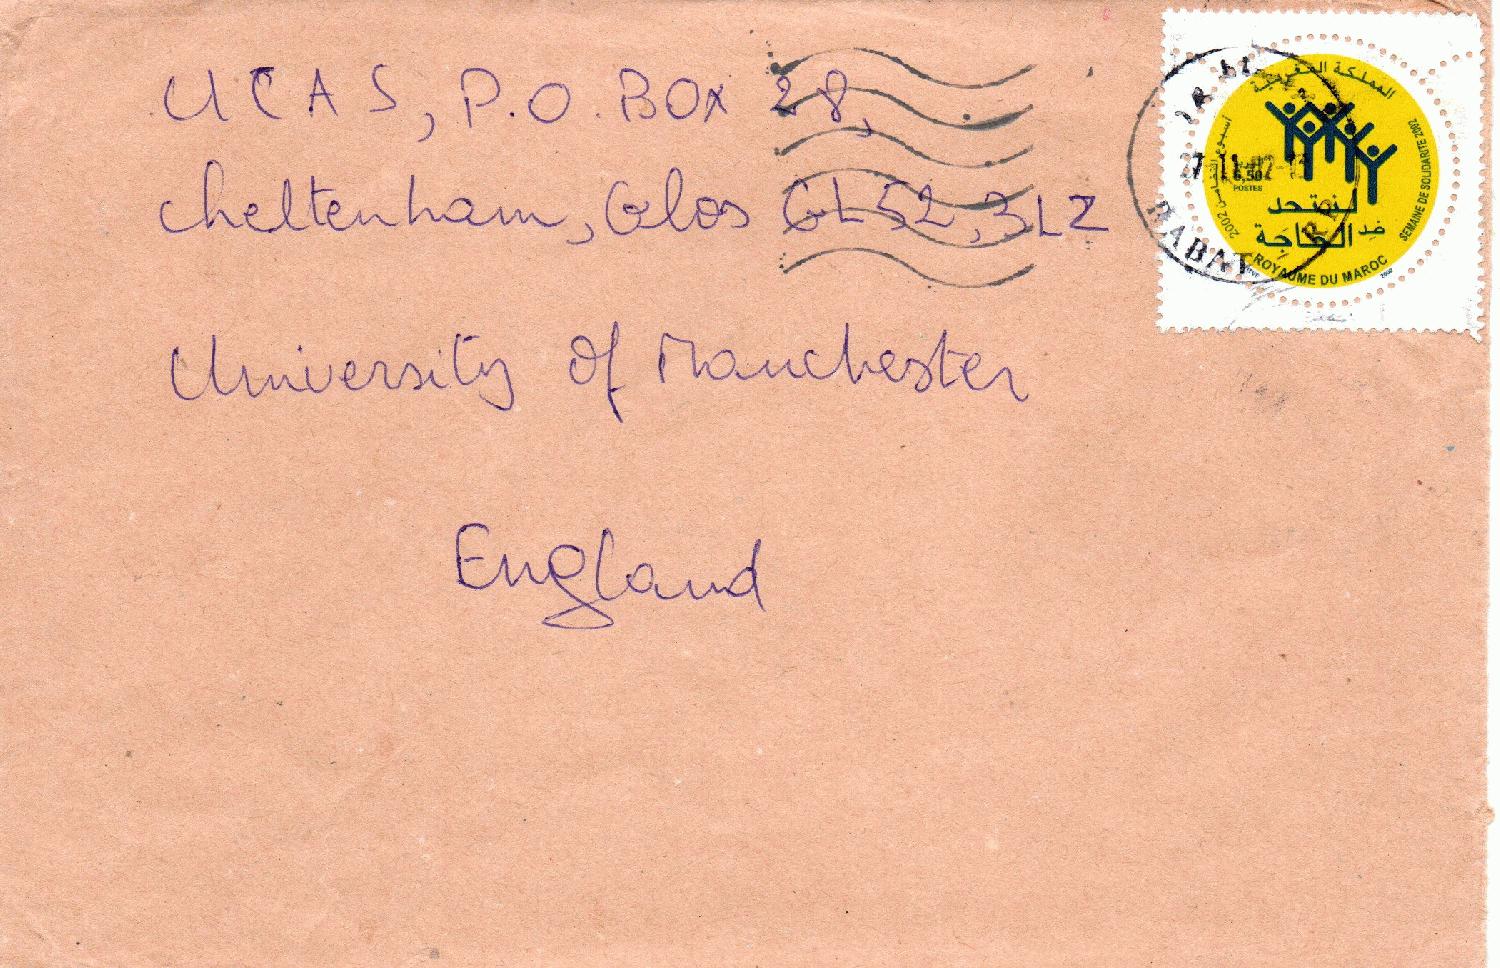 UCAS, P.O. BOX 28,
Cheltenham, Glos GL52, 3LZ
University Of Manchester
England
المملكة المغربية
أسبوع التضامن 2002
SEMAINE DE SOLIDARITE 2002
6,50
POSTES
لنتحد
ضد
الحاجة
ROYAUME DU MAROC
27-11-02-18
RABAT